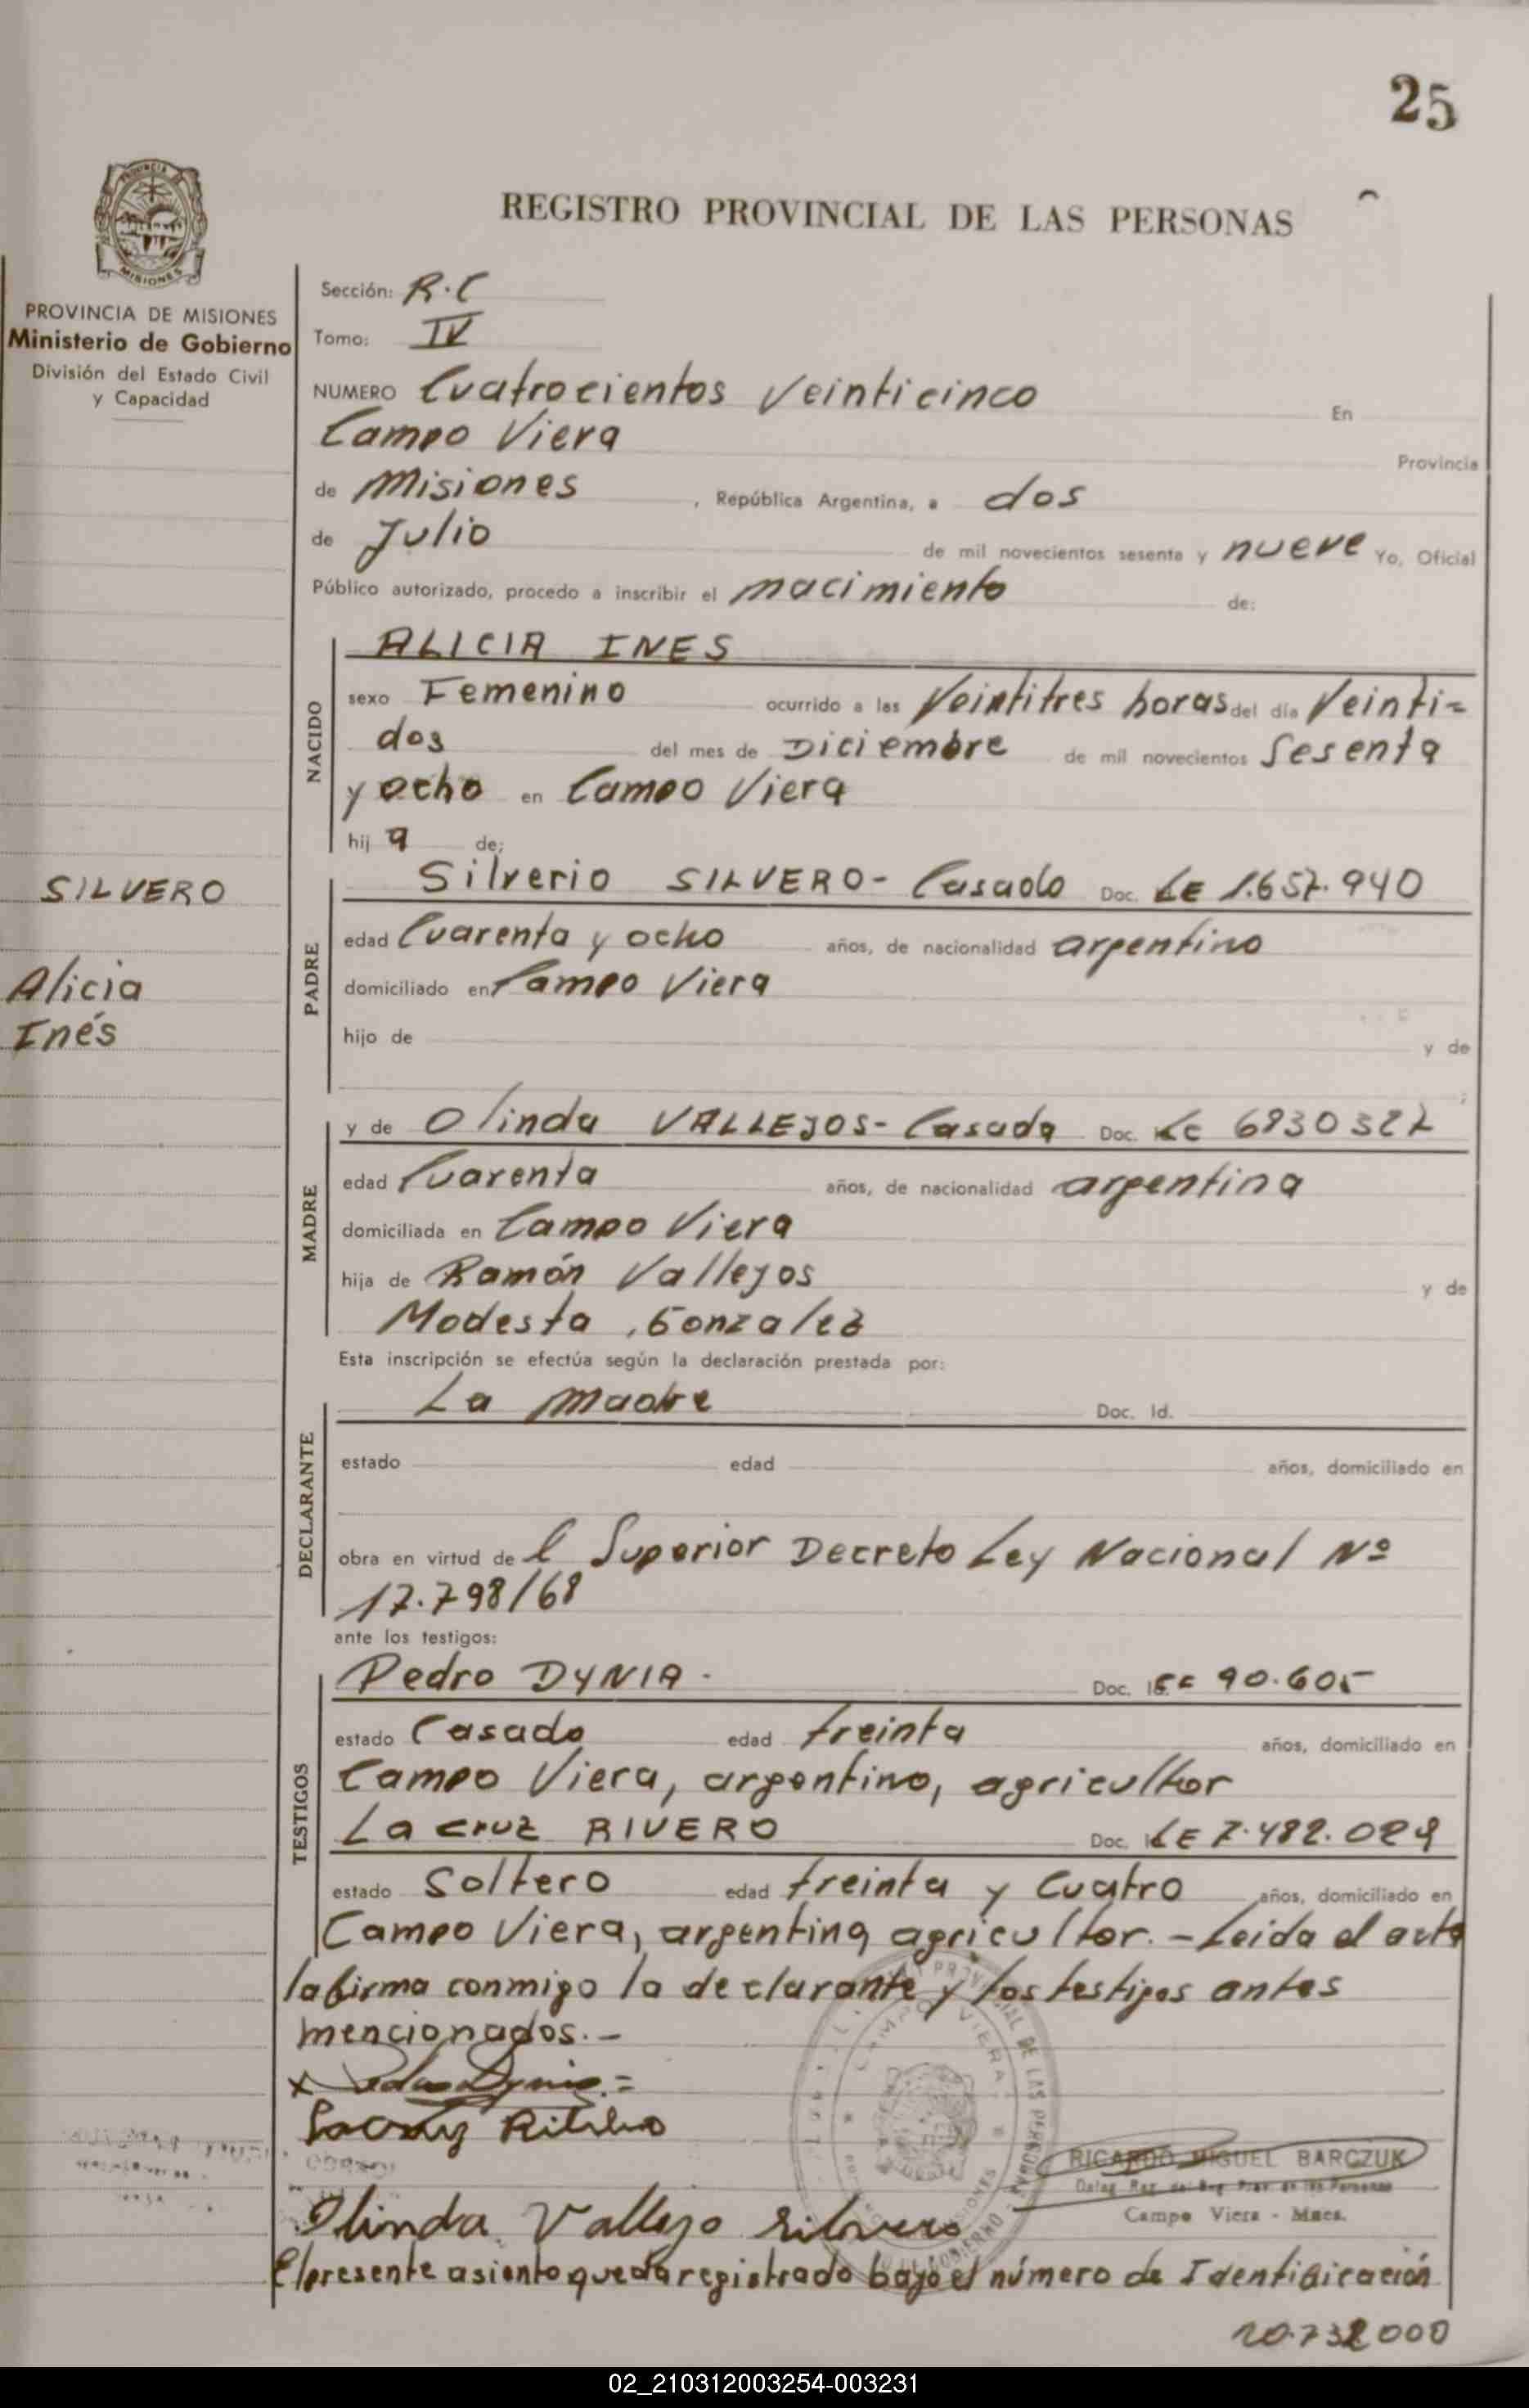 25
REGISTRO PROVINCIAL DE LAS PERSONAS
PROVINCIA DE MISIONES
Ministerio de Gobierno
División del Estado Civil
y Capacidad
Sección: R.C
Tomo: IV
NUMERO Cuatrocientos Veinticinco En
Campo Viera Provincia
de Misiones, República Argentina, a dos
de Julio de mil novecientos sesenta y nueve Yo, Oficial
Público autorizado, procedo a inscribir el nacimiento de:
NACIDO
ALICIA INES
sexo Femenino ocurrido a las Veintitres horas del día Veinti-
dos del mes de Diciembre de mil novecientos Sesenta
y ocho en Campo Viera
hij a de;
SILVERO
Alicia
Inés
PADRE
Silverio SILVERO - Casado Doc. LE 1.657.940
edad Cuarenta y ocho años, de nacionalidad argentino
domiciliado en Campo Viera
hijo de y de
MADRE
y de Olinda VALLEJOS - Casada Doc. LC
edad Cuarenta años, de nacionalidad argentina
domiciliada en Campo Viera
hija de Ramón Vallejos y de
Modesta Gonzalez
Esta inscripción se efectúa según la declaración prestada por:
DECLARANTE
La Madre Doc. Id.
estado edad años, domiciliado en
obra en virtud de l Superior Decreto Ley Nacional Nº
17.798/68
ante los testigos:
TESTIGOS
Pedro DYNIA. Doc. 90.605
estado Casado edad treinta años, domiciliado en
Campo Viera, argentino, agricultor
La cruz RIVERO Doc. LE
estado Soltero edad treinta y cuatro años, domiciliado en
Campo Viera, argentino agricultor. - Leida el acta
la firma conmigo la declarante y los testigos antes
mencionados. -
x Pedro Dynia =
Olinda Vallejo Silvero
RICARDO MIGUEL BARCZUK
Campo Viera - Mnes.
El presente asiento queda registrado bajo el número de Identificación
20.732000
02_210312003254-003231